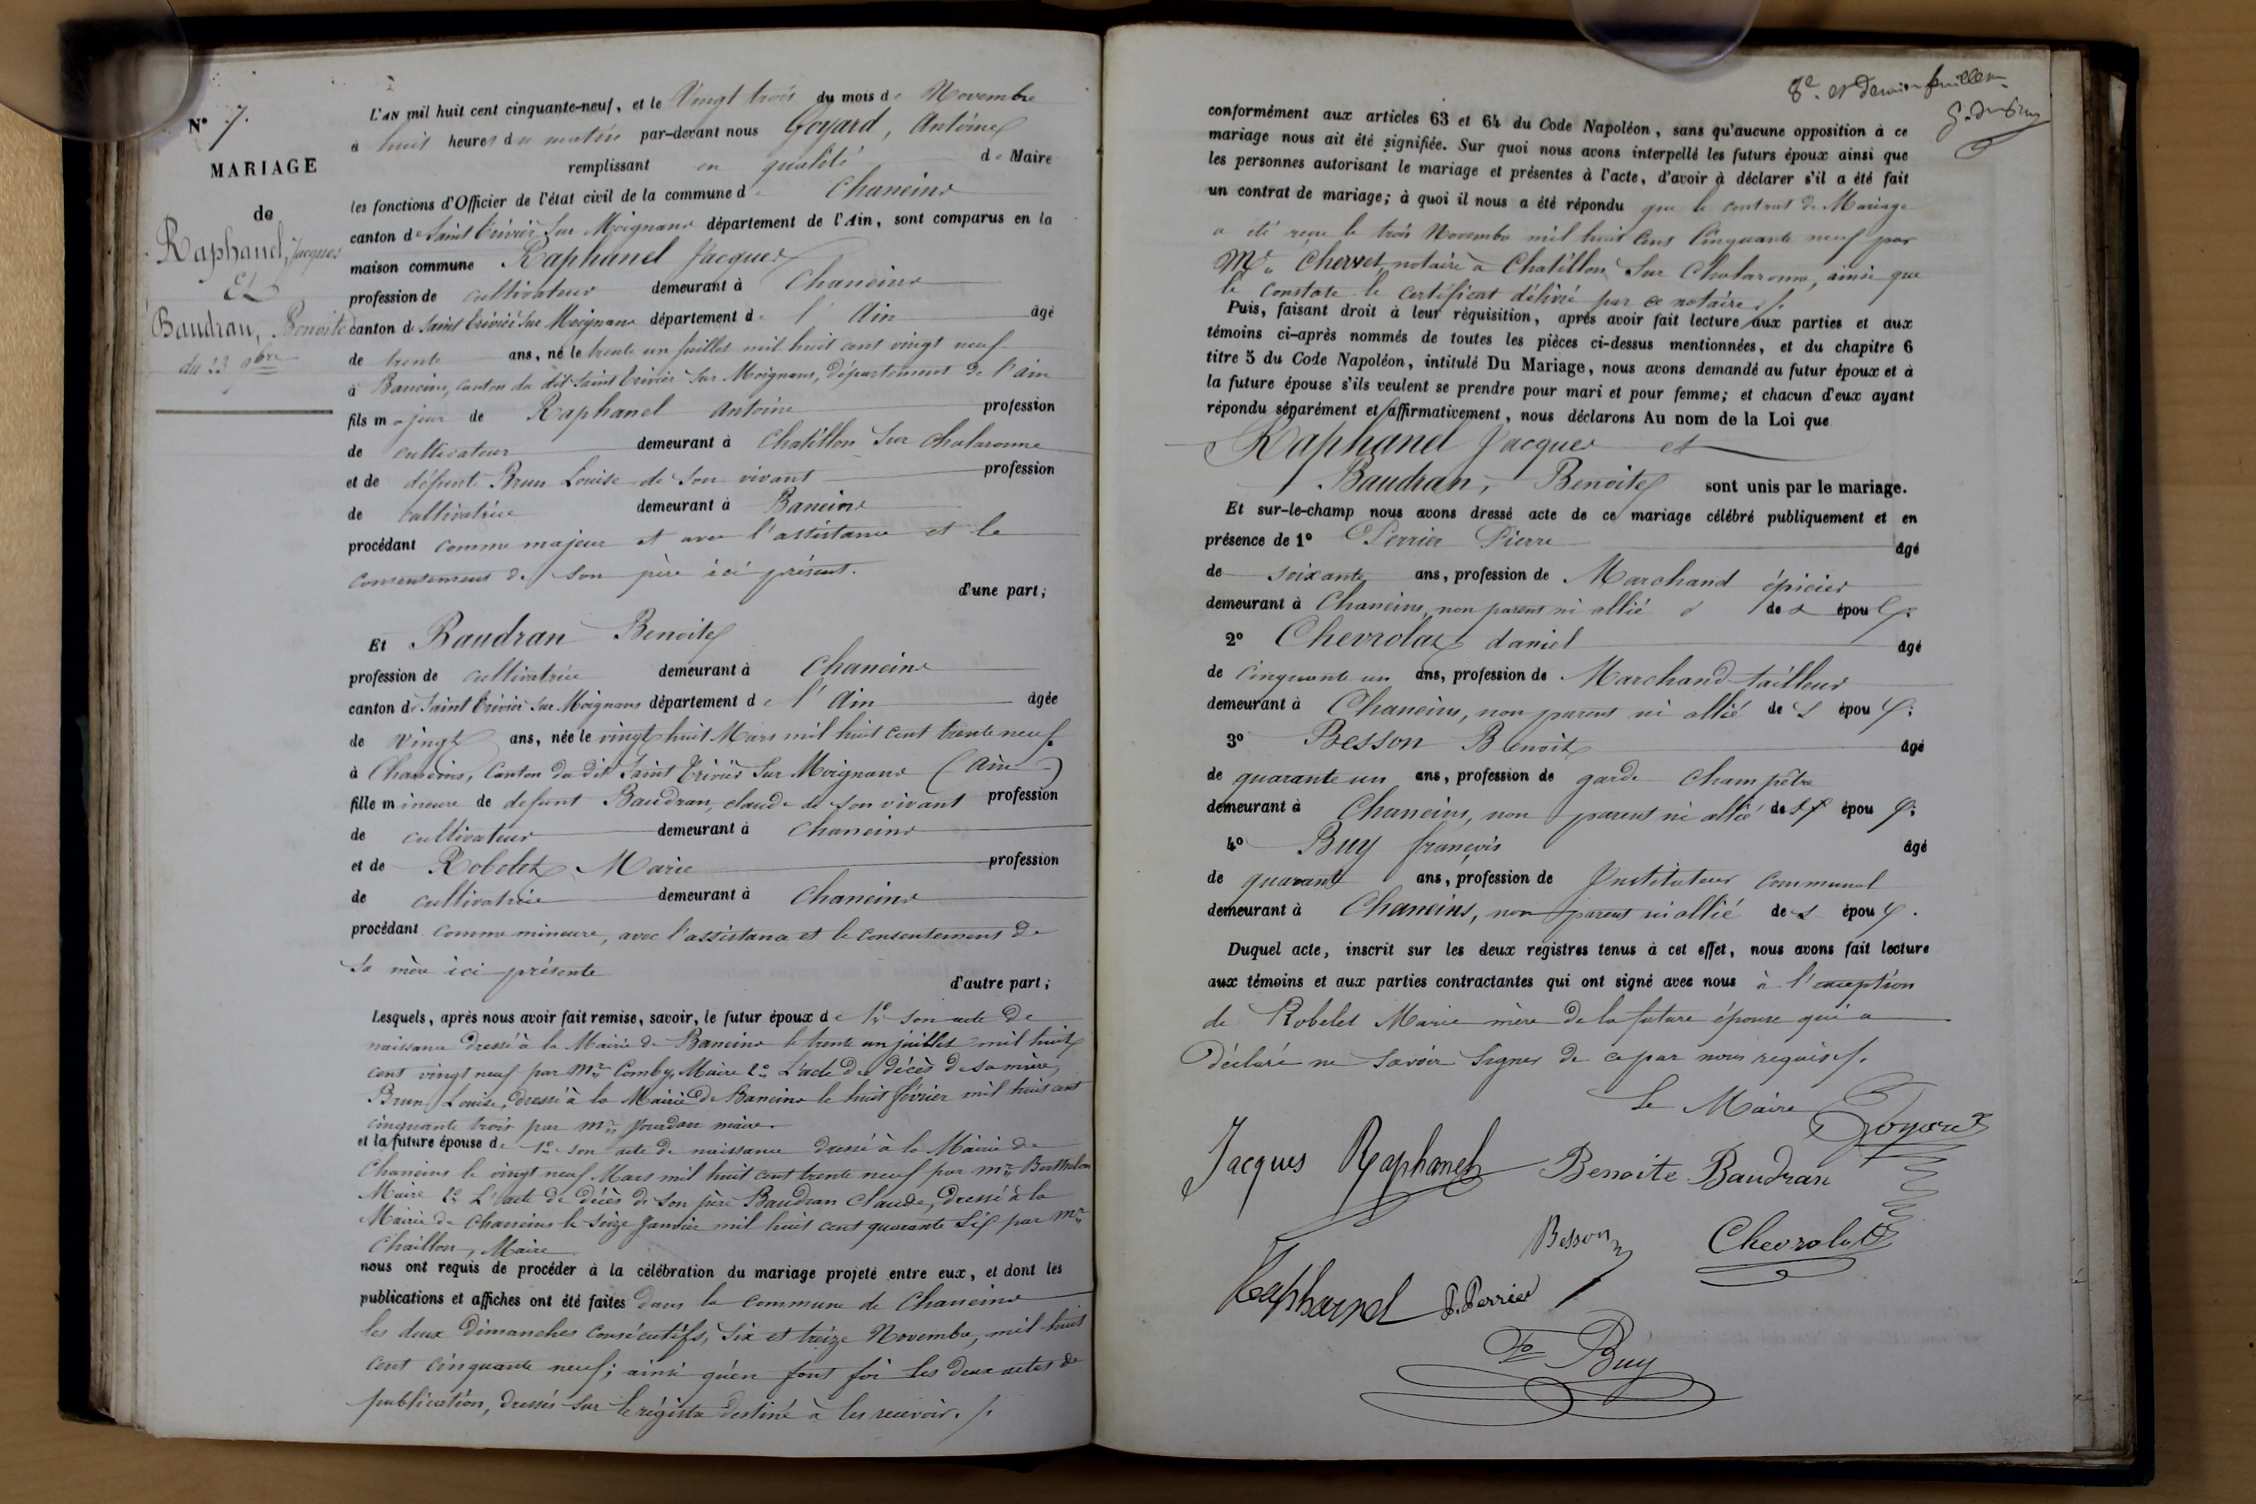 N° 7.
MARIAGE
de
Raphanel, Jacques
Et
Baudran, Benoite
du 23 9bre
L'AN mil huit cent cinquante-neuf, et le Vingt trois du mois de Novembre
à huit heures du matin par-devant nous Goyard, Antoine
remplissant en qualité de Maire
les fonctions d'Officier de l'état civil de la commune de Chaneins
canton de Saint Trivier Sur Moignans département de l'Ain, sont comparus en la
maison commune Raphanel Jacques
profession de cultivateur demeurant à Chaneins
canton de Saint Trivier Sur Moignans département de l'Ain âgé
de trente ans, né le trente un juillet mil huit cent vingt neuf
à Baneins, canton du dit Saint Trivier Sur Moignans, département de l'ain
fils majeur de Raphanel Antoine profession
de cultivateur demeurant à Chatillon Sur Chalaronne
et de défunte Brun Louise de son vivant profession
de cultivatrice demeurant à Baneins
procédant comme majeur et avec l'assistance et le
consentement de son père ici présent.
d'une part;
Et Baudran Benoite
profession de cultivatrice demeurant à Chaneins
canton de Saint Trivier Sur Moignans département de l'Ain âgée
de vingt ans, née le vingt huit Mars mil huit cent trente neuf
à Chaneins, Canton du dit Saint Trivier Sur Moignans (Ain)
fille mineure de defunt Baudran, claude de son vivant profession
de cultivateur demeurant à Chaneins
et de Robelet Marie profession
de cultivatrice demeurant à Chaneins
procédant comme mineure, avec l'assistance et le consentement de
sa mère ici présente
d'autre part;
Lesquels, après nous avoir fait remise, savoir, le futur époux de 1° son acte de
naissance dressé à la Mairie de Baneins le trente un juillet mil huit
cent vingt neuf par Mr Comby, Maire 2° L'acte de décès de sa mère,
Brun Louise, dressé à la Mairie de Baneins le huit février mil huit cent
cinquante trois par Mr Jourdan maire.
et la future épouse de 1° son acte de naissance dressé à la Mairie de
Chaneins le vingt neuf Mars mil huit cent trente neuf par Mr Berthelon
Maire 2° L'acte de décès de son père Baudran Claude, dressé à la
Mairie de Chaneins le Seize Janvier mil huit cent quarante Six par Mr
Chaillon, Maire
nous ont requis de procéder à la célébration du mariage projeté entre eux, et dont les
publications et affiches ont été faites dans la commune de Chaneins
les deux Dimanches consécutifs, six et treize Novembre, mil huit
cent cinquante neuf; ainsi qu'en font foi les deux actes de
publication, dressés sur le registre destiné à les recevoir.
8e et dernier feuillet
conformément aux articles 63 et 64 du Code Napoléon, sans qu'aucune opposition à ce
mariage nous ait été signifiée. Sur quoi nous avons interpellé les futurs époux ainsi que
les personnes autorisant le mariage et présentes à l'acte, d'avoir à déclarer s'il a été fait
un contrat de mariage; à quoi il nous a été répondu que le contrat de Mariage
a été reçu le trois Novembre mil huit cent Cinquante neuf par
Me Chervet, notaire à Chatillon Sur Chalaronne, ainsi que
le constate le certificat délivré par ce notaire.
Puis, faisant droit à leur réquisition, après avoir fait lecture aux parties et aux
témoins ci-après nommés de toutes les pièces ci-dessus mentionnées, et du chapitre 6
titre 5 du Code Napoléon, intitulé Du Mariage, nous avons demandé au futur époux et à
la future épouse s'ils veulent se prendre pour mari et pour femme; et chacun d'eux ayant
répondu séparément et affirmativement, nous déclarons Au nom de la Loi que
Raphanel Jacques et
Baudran, Benoite sont unis par le mariage.
Et sur-le-champ nous avons dressé acte de ce mariage célébré publiquement et en
présence de 1° Perrier Pierre âgé
de soixante ans, profession de Marchand épicier
demeurant à Chaneins, non parent ni allié des époux.
2° Chevrolat daniel âgé
de cinquante un ans, profession de Marchand tailleur
demeurant à Chaneins, non parent ni allié des époux;
3° Besson Benoit âgé
de quarante un ans, profession de garde Champêtre
demeurant à Chaneins, non parent ni allié des époux;
4° Buy françois âgé
de quarante ans, profession de Instituteur communal
demeurant à Chaneins, non parent ni allié des époux.
Duquel acte, inscrit sur les deux registres tenus à cet effet, nous avons fait lecture
aux témoins et aux parties contractantes qui ont signé avec nous à l'exception
de Robelet Marie mère de la future épouse qui a
déclaré ne savoir signer de ce par nous requise.
Le Maire Goyard
Jacques Raphanel Benoite Baudran
Besson Chevrolat
Raphanel P. Perrier
Buy